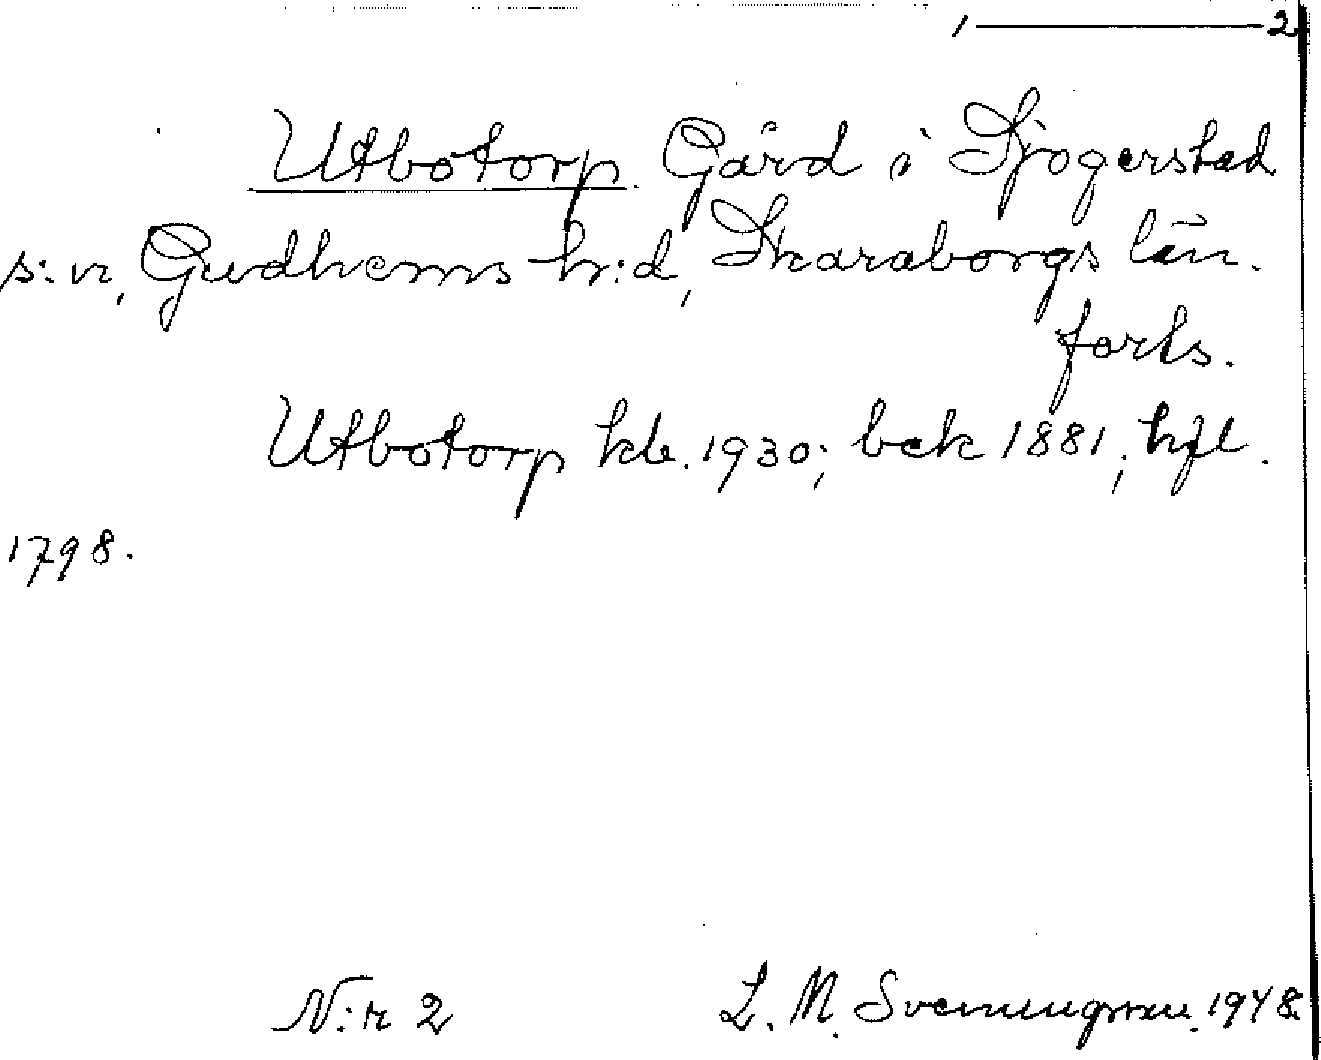 1 — 2
Utbotorp. Gård i Sjogerstad
s:n, Gudhems h:d, Skaraborgs län.
forts.
Utbotorp kb. 1930; bek 1881; hfl.
1798.
N:r 2 L. M. Svenungsson. 1948.